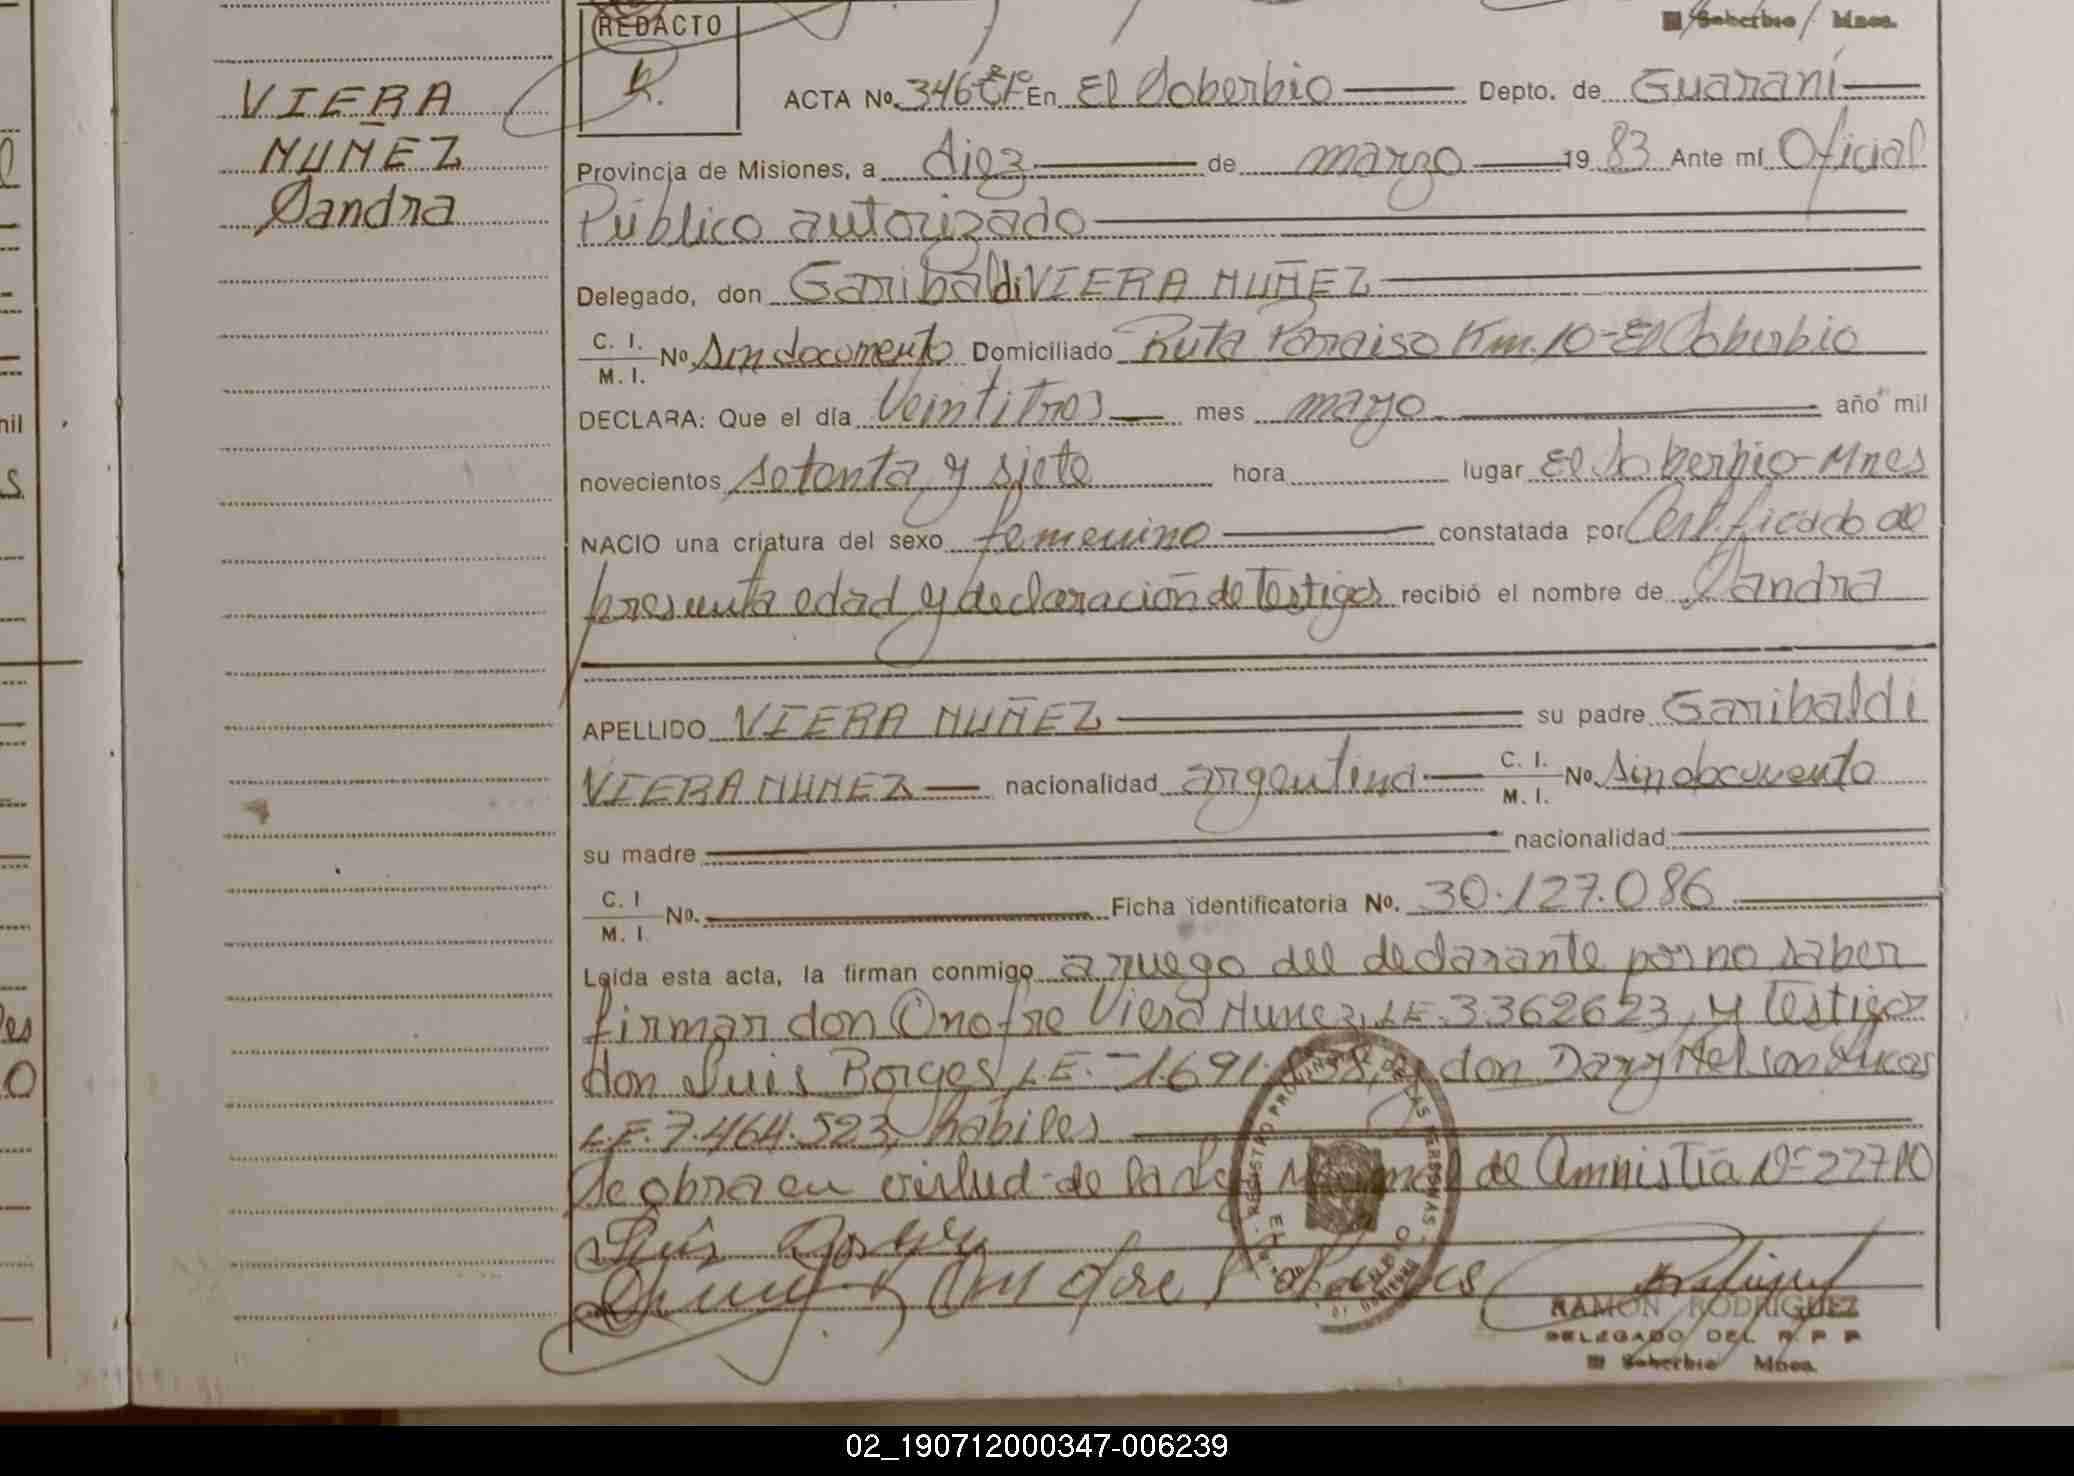 El Soberbio Mnes.
REDACTO
VIERA
NUÑEZ
Sandra
ACTA No. 346 En El Soberbio Depto. de Guaraní
Provincia de Misiones, a diez de marzo 19 83 Ante mí Oficial
Público autorizado
Delegado, don Garibaldi VIERA NUÑEZ
C. I.
M. I. No. Sin documento Domiciliado Ruta Paraiso Km. 10 - El Soberbio
DECLARA: Que el día Veintitres mes mayo año mil
novecientos setenta y siete hora lugar El Soberbio - Mnes
NACIO una criatura del sexo femenino constatada por Certificado de
presunta edad y declaración de Testigos recibió el nombre de Sandra
APELLIDO VIERA NUÑEZ su padre Garibaldi
VIERA NUÑEZ nacionalidad argentina C. I. M. I. No. Sin documento
su madre nacionalidad
C. I M. I. No. Ficha identificatoria No. 30.127.086
Leída esta acta, la firman conmigo a ruego del declarante por no saber
firmar don Onofre Viera Nunez, L.E. 3362623, y Testigos
don Luis Borges L.E. 1.691. don Dary Nelson Lucas
L.E. 7.464.523, habiles
Se obra en virtud de la Ley de Amnistía Nº 22710
Luis Borges
Onofre
RAMON RODRIGUEZ
DELEGADO DEL R P P
El Soberbio Mnes.
02_190712000347-006239